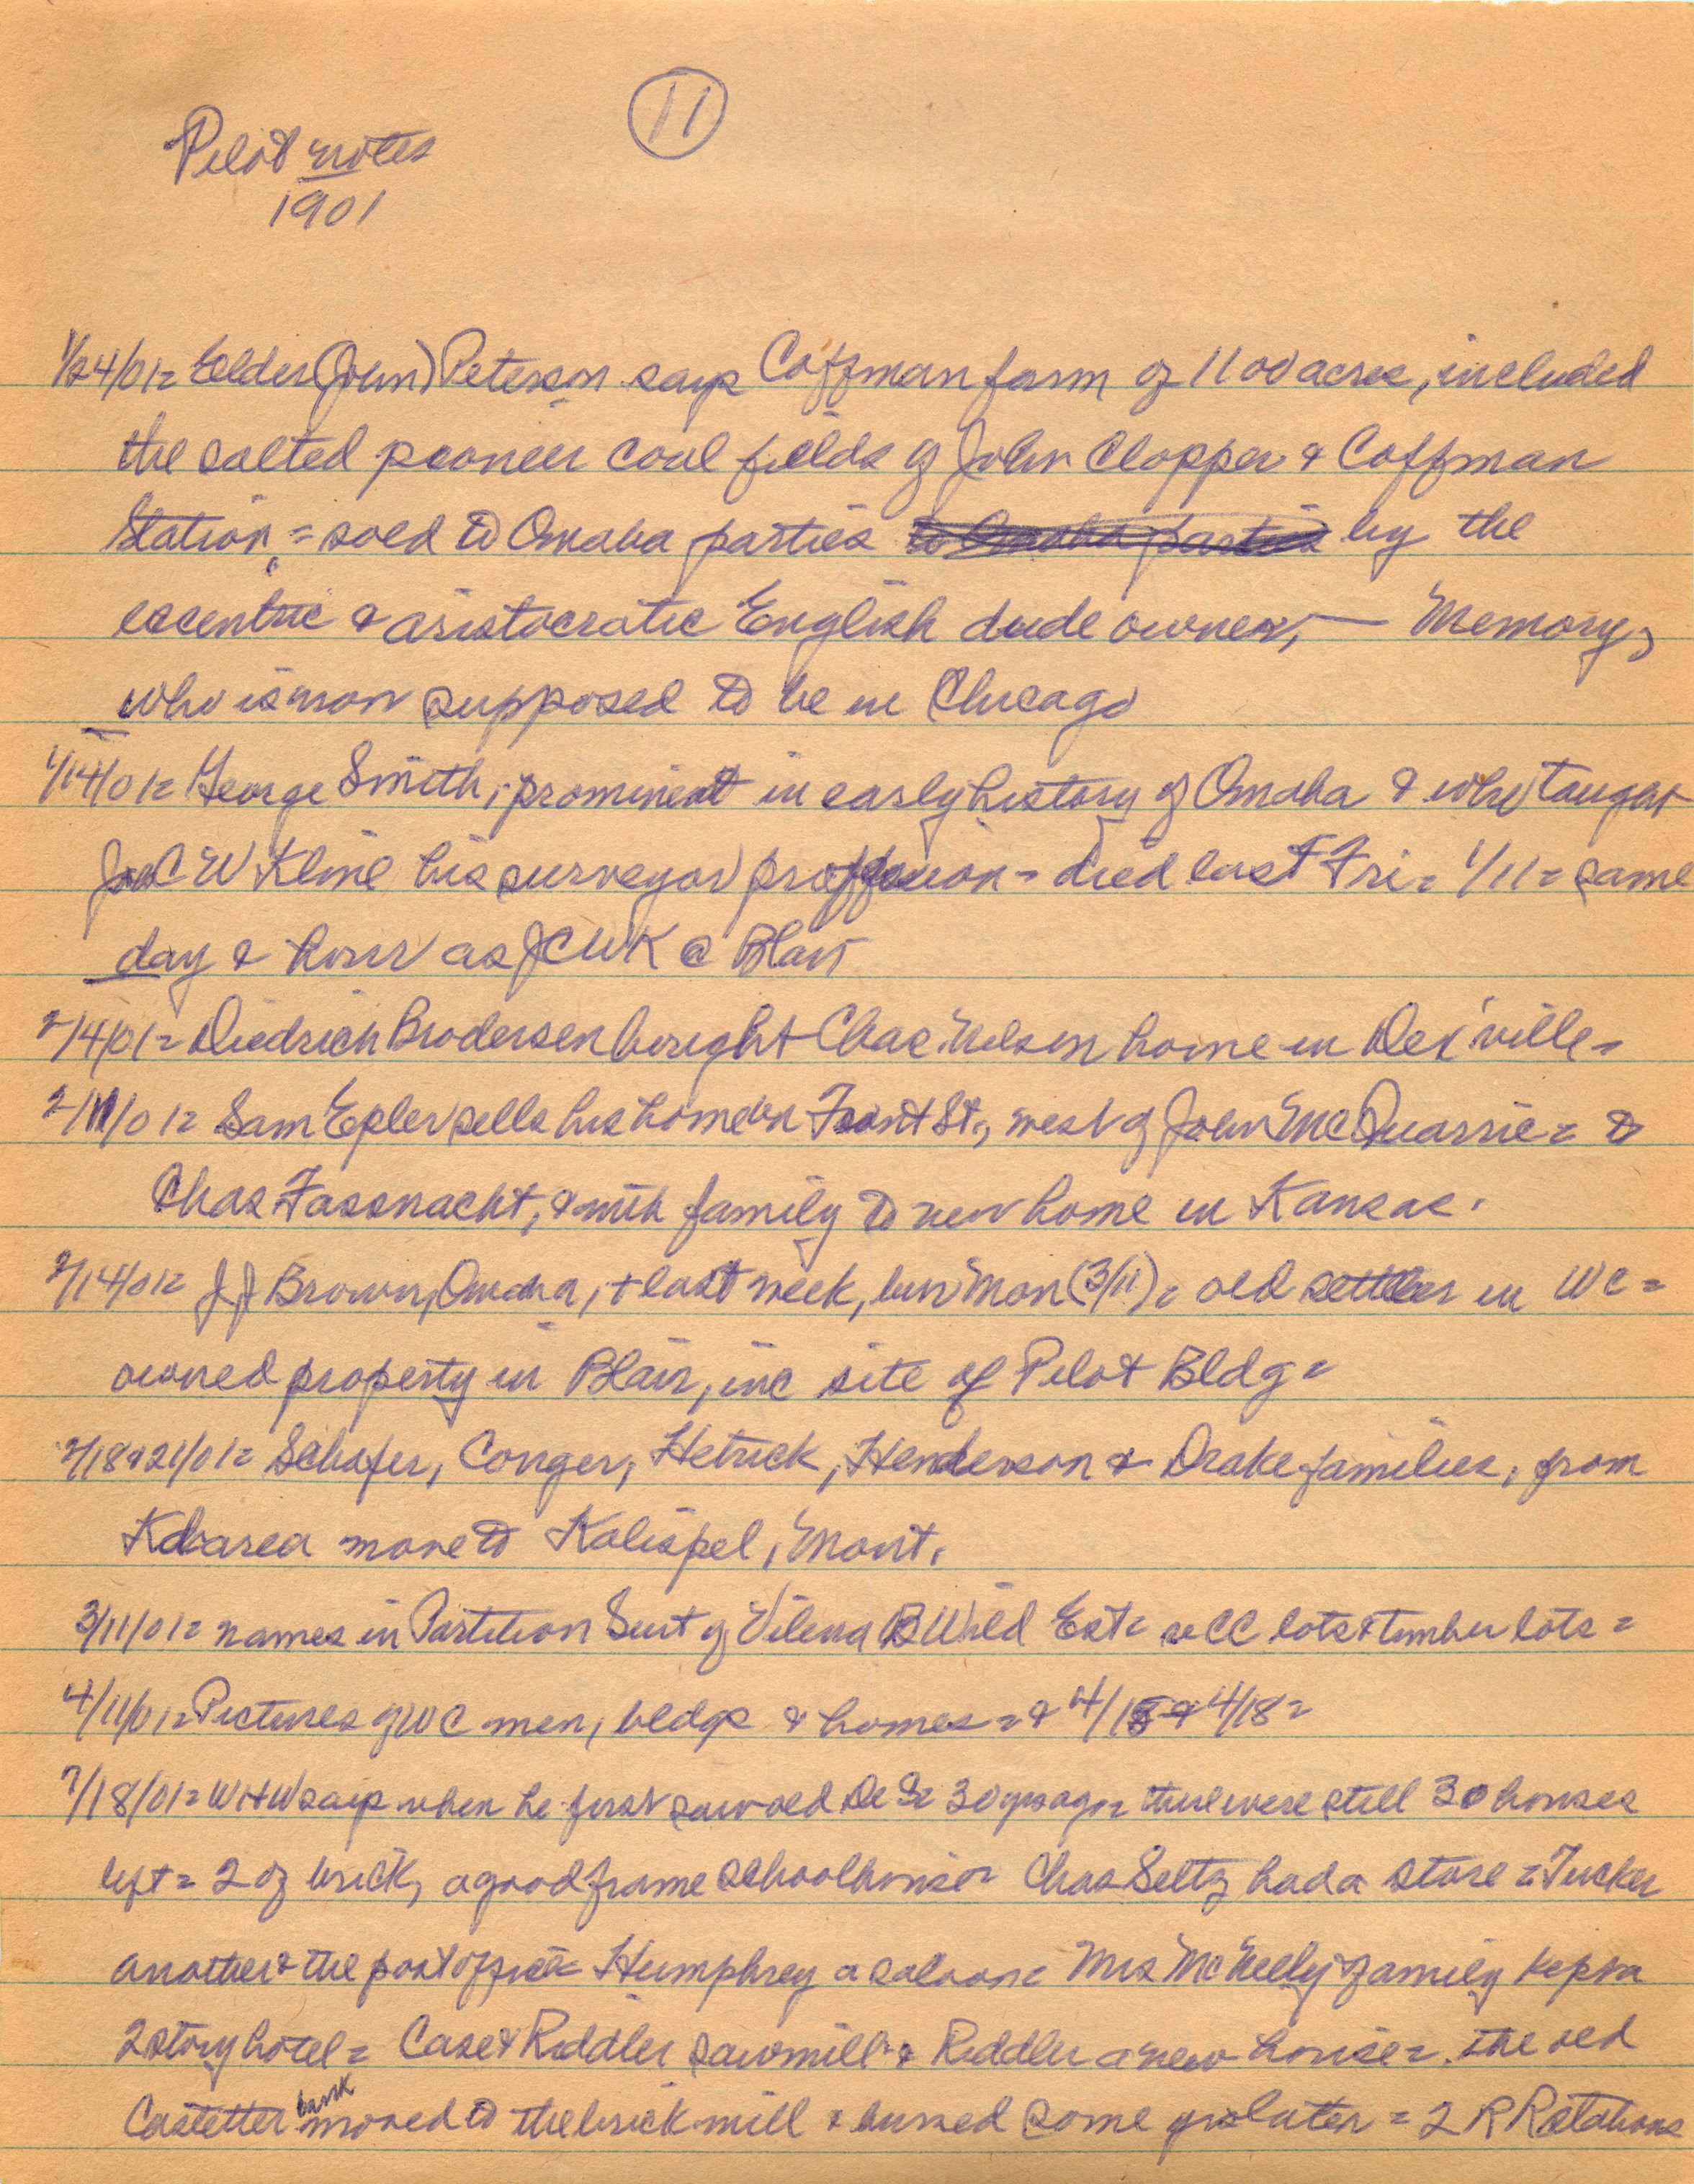 11
Pilot notes
1901
1/24/01= Elder (John) Peterson says Coffman farm of 1100 acres, included
the salted pioneer coal fields of John Clopper & Coffman
Station = sold to Omaha parties to Omaha parties by the
eccentric & aristocratic English dude owner, — Memory,
who is now supposed to be in Chicago
1/14/01= George Smith, prominent in early history of Omaha & who taught
JC W Kline his surveyor profession - died last Fri = 1/11 = same
day & hour as JCWK @ Blair
2/4/01= Diedrich Brodersen bought Chas Nelson home in Des'ville =
2/11/01= Sam Epler sells his home on Front St., west of John McQuarrie = to
Chas Fassnacht, & with family to new home in Kansas.
2/14/01= J J Brown, Omaha, + last week, bur Mon (3/11) = old settler in WC =
owned property in Blair, inc site of Pilot Bldg =
2/18&21/01= Schafer, Conger, Hetrick, Henderson & Drake families, from
area move to Kalispel, Mont.
3/11/01= names in Partition Suit of Vilena B Wild Est = CC lots & timber lots =
4/11/01= Pictures of WC men, bldgs & homes = & 4/15 & 4/18 =
7/18/01= WHW says when he first saw old De So 30 yrs ago = there were still 30 houses
left = 2 of brick, a good frame schoolhouse = Chas Seltz had a store = Tucker
another & the post office = Humphrey a saloon = Mrs McNeely & family kept a
2 story hotel = Case & Riddler sawmill & Riddler a new house = the old
Castetter bank moved to the brick mill & burned some yrs later = 2 RR stations